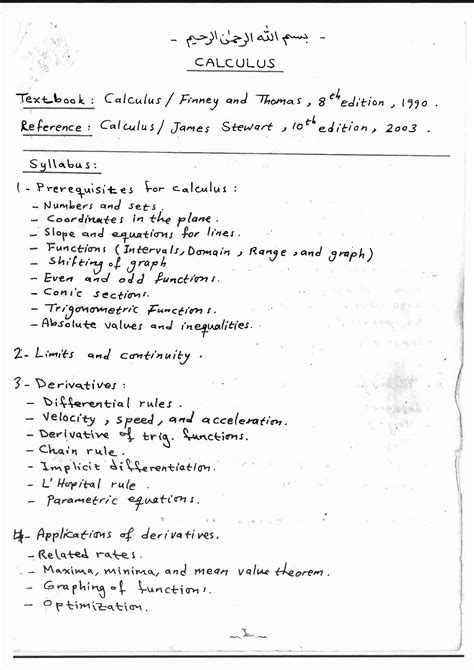 - بسم الله الرحمن الرحيم -
CALCULUS
Textbook : Calculus / Finney and Thomas , 8th edition , 1990 .
Reference : Calculus / James Stewart , 10th edition , 2003 .
Syllabus :
1 - Prerequisites for calculus :
- Numbers and sets.
- Coordinates in the plane.
- Slope and equations for lines.
- Functions ( Intervals, Domain , Range , and graph)
- Shifting of graph
- Even and odd functions.
- Conic sections.
- Trigonometric Functions.
- Absolute values and inequalities.
2 - Limits and continuity .
3 - Derivatives :
- Differential rules .
- Velocity , speed, and acceleration.
- Derivative of trig. functions.
- Chain rule .
- Implicit differentiation.
- L' Hopital rule .
- Parametric equations.
4 - Applications of derivatives.
- Related rates.
- Maxima, minima, and mean value theorem.
- Graphing of functions.
- Optimization.
- 1 -